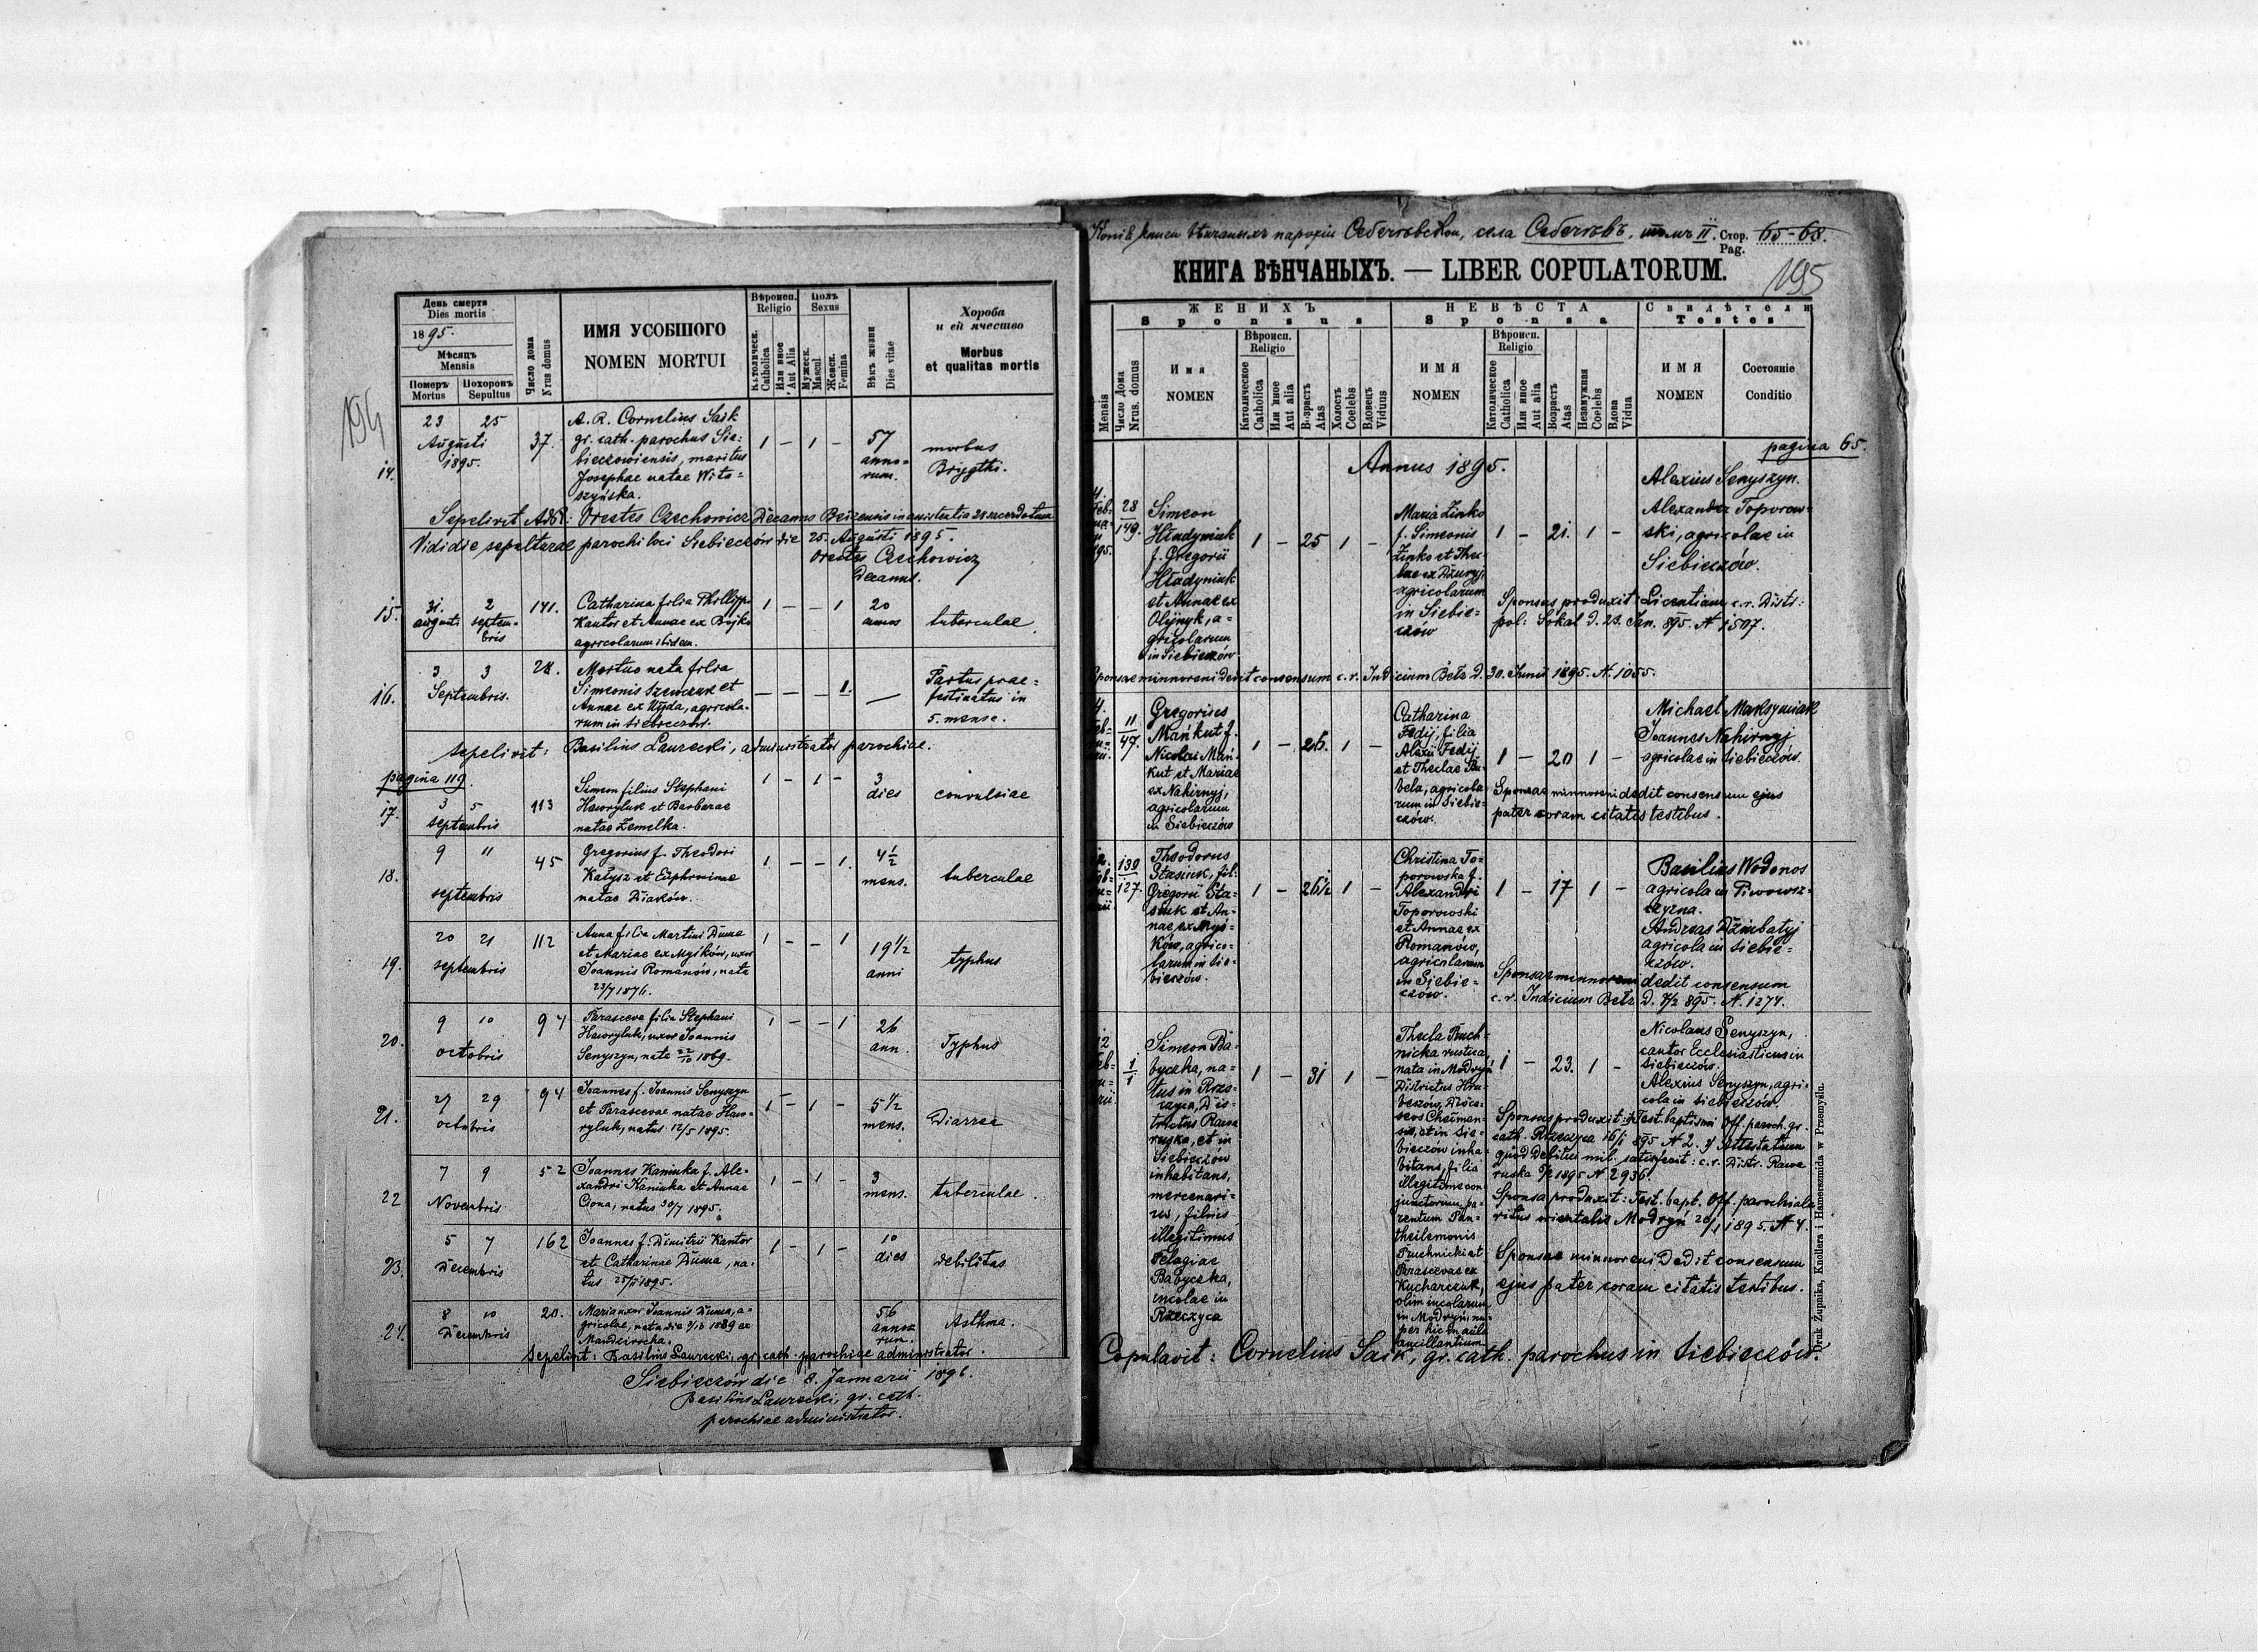 194
День смерти
Dies mortis
1895.
Мѣсяцъ
Mensis
Померъ Mortus
Похоронъ Sepultus
Число дома
Nrus domus
ИМЯ УСОБШОГО
NOMEN MORTUI
Вѣроисп.
Religio
Католическ.
Catholica
Или иное
Aut Alia
Полъ
Sexus
Мужеск.
Mascul.
Женск.
Femina
Вѣкъ жизни
Dies vitae
Хороба
и ей ячество
Morbus
et qualitas mortis
14. 23 25 Augusti 1895. 37. 1 – 1 – 57 annorum. morbus Brygthi.
A. R. Cornelius Saik
gr. cath. parochus Sie=
bieczowiensis, maritus
Josephae natae Wito=
szyńska.
Sepelivit Orestes Czechowicz Decanus Belzensis in assistentia 28 sacerdotum
Vidi die sepulturae parochi loci Siebieczów die 25. Augusti 1895.
Orestes Czechowicz
Decanus.
15. 31. augusti 2 septem=bris 141. 1 – – 1 20 annos tuberculae
Catharina filia Phillippi
Kantor et Annae ex Bojko
agricolarum ibidem.
16. 3 3 Septembris. 28. – – – 1. — Partus prae=festinatus in 5. mense.
Mortuo nata filia
Simeonis Szewczuk et
Annae ex Wujda, agricola=
rum in Siebieczów.
sepelivit: Basilius Laurecki, administrator parochiae.
pagina 119.
17. 3 5 septembris 113 1 – 1 – 3 dies convulsiae
Simeon filius Stephani
Hawryluk et Barbarae
natae Zemelka.
18. 9 11 septembris 45 1. – – 1. 4 1/2 mens. tuberculae
Gregorius f. Theodori
Kałysz et Euphrosinae
natae Diaków.
19. 20 21 septembris 112 1 – – 1 19 1/2 anni typhus
Anna filia Martini Duma
et Mariae ex Myśków, uxor
Joannis Romanów, nata
23/7 1876.
20. 9 10 octobris 94 1 – – 1 26 ann. Typhus
Parasceva filia Stephani
Hawryluk, uxor Joannis
Senyszyn, nata 22/10 1869.
21. 27 29 octobris 94 1 – 1 – 5 1/2 mens. Diarrea
Joannes f. Joannis Senyszyn
et Parascevae natae Haw=
ryluk, natus 12/5 1895.
22 7 9 Novembris 52 1 – 1 – 3 mens. tuberculae.
Joannes Kaniuka f. Ale=
xandri Kaniuka et Annae
Ciona, natus 30/7 1895.
23. 5 7 Decembris 162 1 – 1 – 10 dies debilitas
Joannes f. Dimitrii Kantor
et Catharinae Duma, na=
tus 25/11 1895.
24. 8 10 Decembris 20. 56 annorum. Asthma.
Maria uxor Joannis Duma, a=
gricolae, nata die 1839 ex
Mandzirocha.
sepelivit: Basilius Laurecki, gr. cath. parochiae administrator.
Siebieczów die 8. Januarii 1896.
Basilius Laurecki, gr. cath.
parochiae administrator.
Копія книги вѣнчаныхъ парохіи Себечовской, села Себечôвъ. томъ II. Стор. Pag. 65-68.
КНИГА ВѢНЧАНЫХЪ. — LIBER COPULATORUM.
195
Mensis
Число Дома
Nrus. domus
ЖЕНИХЪ
Sponsus
Имя
NOMEN
Вѣроисп.
Religio
Католическое
Catholica
Или иное
Aut alia
Возрастъ
Atas
Холостъ
Coelebs
Вдовецъ
Viduus
НЕВѢСТА
Sponsa
ИМЯ
NOMEN
Вѣроисп.
Religio
Католическое
Catholica
Или иное
Aut alia
Возрастъ
Atas
Незамужная
Coelebs
Вдова
Vidua
Свидѣтели
Testes
ИМЯ
NOMEN
Состояніе
Conditio
pagina 65.
Annus 1895.
28
149.
Simeon
Hładyniuk
f. Gregorii
Hładyniuk
et Annae ex
Olijnyk, a=
gricolarum
in Siebieczów
1 – 25 1 –
Maria Zinko
f. Simeonis
Zinko et The=
clae ex Dżuryj,
agricolarum
in Siebie=
czów
1 – 21. 1 –
Alexius Senyszyn.
Alexander Toporow=
ski, agricolae in
Siebieczów.
Sponsus produxit: Licentiam c. r. Distr:
pol: Sokal d. 23. Jan. 895. N 1507.
Sponsae minnoreni dedit consensum c. r. Judicium Bełz d. 30. Junii 1895. N. 1055.
11
47.
Gregorius
Mańkut f.
Nicolai Mań=
kut et Mariae
ex Nahirnyj,
agricolarum
in Siebieczów
1 – 26. 1 –
Catharina
Fedij, filia
Alexii Fedij
et Theclae Bu=
bela, agricola=
rum in Siebie=
czów.
1 – 20 1 –
Michael Maksymiak
Joannes Nahirnyj
agricolae in Siebieczów.
Sponsae minnoreni dedit consensum ejus
pater coram citatis testibus.
139
127.
Theodorus
Stasiuk, fil.
Gregorii Sta=
siuk et An=
nae ex Myś=
ków, agrico=
larum in Sie=
bieczów.
1 – 26 1/2 1 –
Christina To=
porowska f.
Alexandri
Toporowski
et Annae ex
Romanów,
agricolarum
in Siebie=
czów.
1 – 17 1 –
Basilius Wodonos
agricola in Piwowsz=
czyzna.
Andreas Dżinbatyj
agricola in Siebie=
czów.
Sponsae minnoreni dedit consensum
c. r. Judicium Bełz D. 7/2 895. N. 1274.
1
1
Simeon Ba=
byczka, na=
tus in Rze=
czyca, Dis=
trictus Rawa
ruska, et in
Siebieczów
inhabitans,
mercenari=
us, filius
illegitimus
Pelagiae
Babyczka,
incolae in
Rzeczyca
1 – 31 1 –
Thecla Pruch=
nicka rustica,
nata in Modryń
Districtus Hru=
beszów, Dióce=
seos Chełmen=
sis, et in Sie=
bieczów inha=
bitans, filia
illegitime con=
junctorum pa=
rentum Pan=
theilemonis
Pruchnicki et
Parascevae ex
Kucharczuk,
olim incolarum
in Modryń nu=
per hic in aula
ancillantium.
1 – 23. 1 –
Nicolaus Senyszyn,
cantor Ecclesiasticus in
Siebieczów.
Alexius Senyszyn, agri=
cola in Siebieczów.
Sponsus produxit: Test. baptismi Off. paroch. gr.
cath. Rzeczyca 16/1 895 N 2. Attestatum
quod debitui mil. satisfecit: c. r. Distr. Rawa
ruska 1895 N 2936.
Sponsa produxit: Test. bapt. Off. parochialis
ritus orientalis Modryń 28/1 1895. N 4.
Sponsae minnoreni dedit consensum
ejus pater coram citatis testibus.
Copulavit: Cornelius Saik, gr. cath. parochus in Siebieczów.
Druk Żupnika, Knollera i Hamerszmida w Przemyślu.